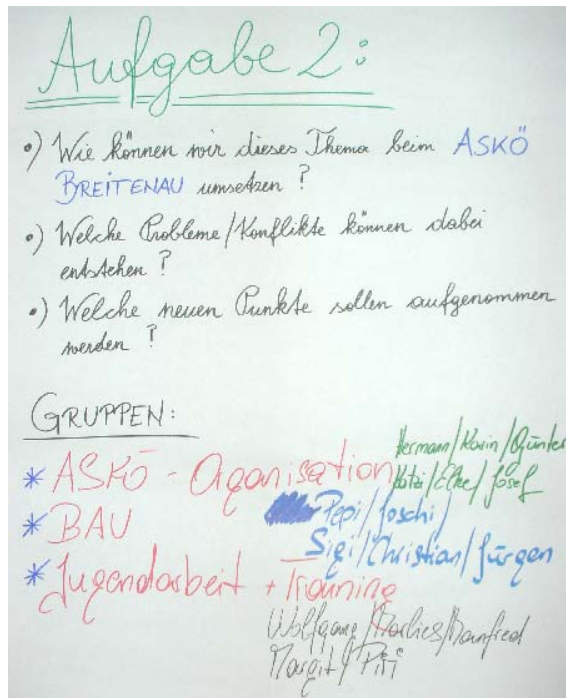 Aufgabe 2:
•) Wie können wir dieses Thema beim ASKÖ
BREITENAU umsetzen ?
•) Welche Probleme/Konflikte können dabei
entstehen ?
•) Welche neuen Punkte sollen aufgenommen
werden ?
GRUPPEN:
* ASKÖ - Oganisation
Hermann/Karin/Günter
/Elke/Josef
* BAU
Pepi/Joschi/
Sigi/Christian/Jürgen
* Jugendarbeit + Training
Wolfgang/Marlies/Manfred
Margit/Pitï